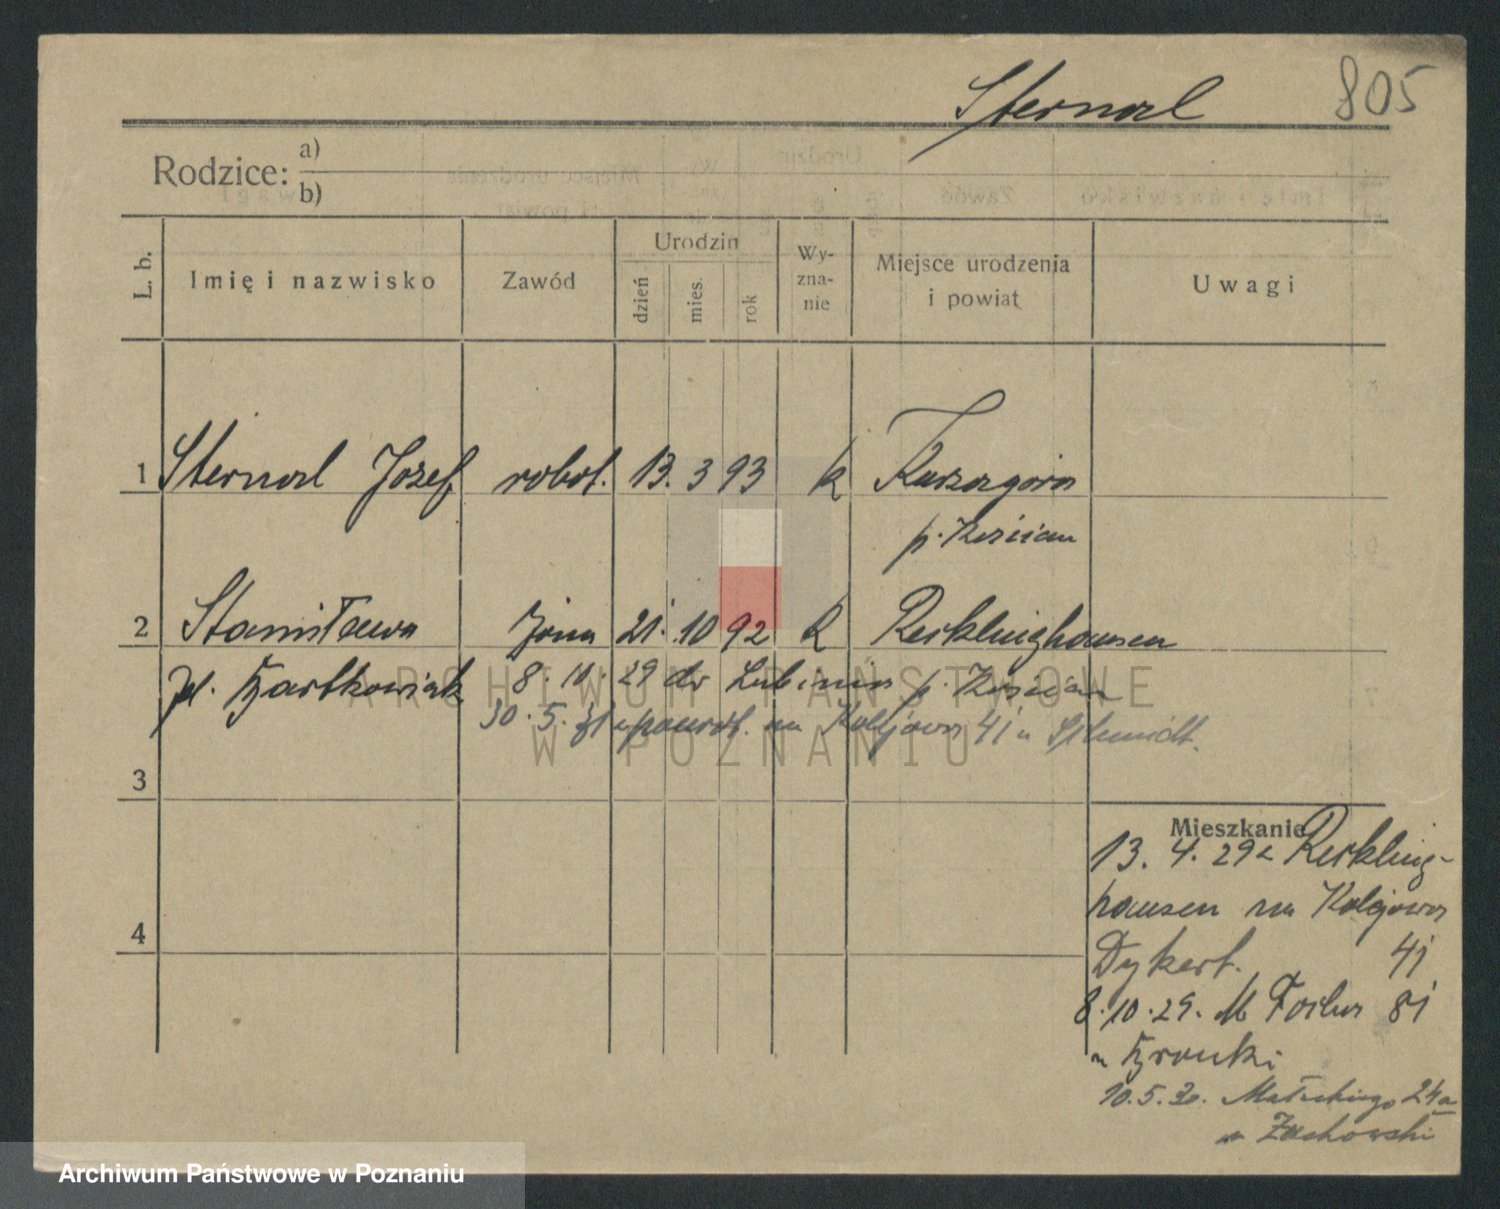 Sternal 805
Rodzice: a)
b)
L. b. Imię i nazwisko Zawód Urodzin dzień mies. rok Wy-zna-nie Miejsce urodzenia i powiat Uwagi
1 Sternal Józef robot. 13. 3 93 k
p. Kościan
2 Stanisława żona 21. 10 92 k Recklinghausen
8. 10. 29 do Lubinia p. Kościan
30. 5. na Kolejowa 41 u Schmidt.
3
Mieszkanie
13. 4. 29 z Reckling-
hausen na Kolejowa
4 Dykert. 41
8. 10. 29. M Focha 81
u
10. 5. 30. Małeckiego 24a
u Zachowski
ARCHIWUM PAŃSTWOWE
W POZNANIU
Archiwum Państwowe w Poznaniu